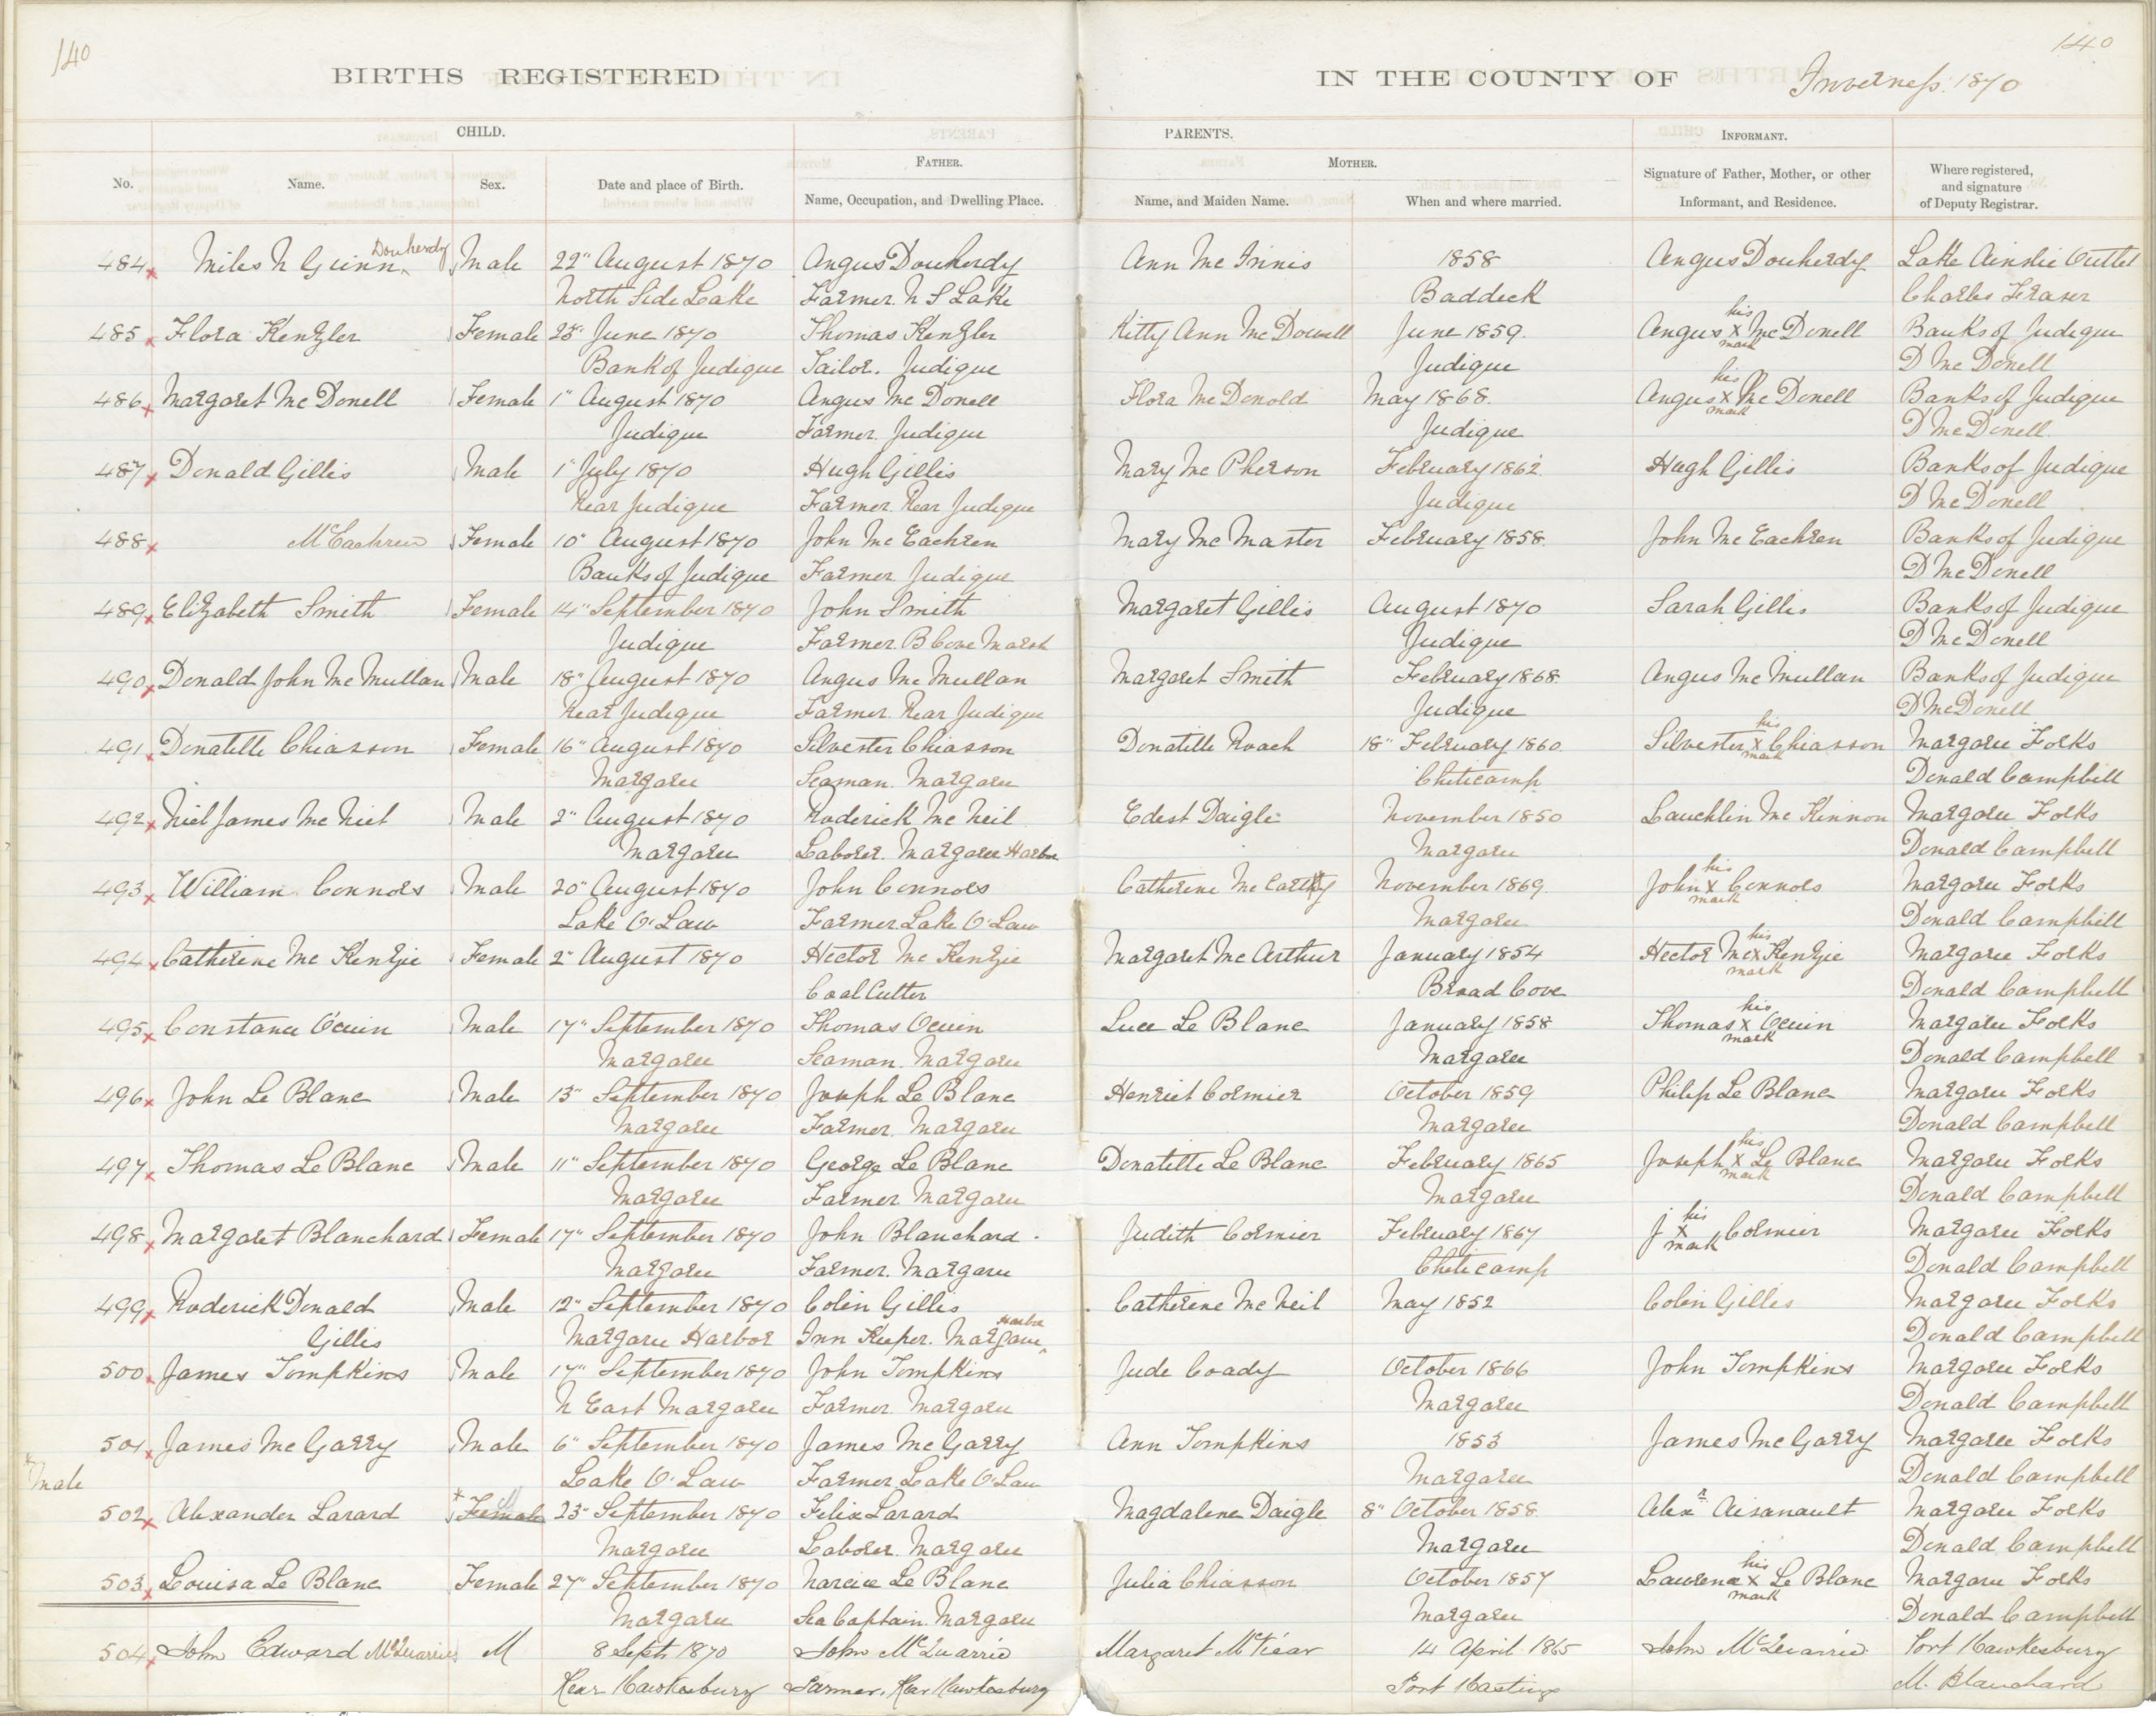 140
140
BIRTHS REGISTERED
IN THE COUNTY OF Inverness. 1870
CHILD.
PARENTS.
INFORMANT.
FATHER.
MOTHER.
No.
Name.
Sex.
Date and place of Birth.
Name, Occupation, and Dwelling Place.
Name, and Maiden Name.
When and where married.
Signature of Father, Mother, or other Informant, and Residence.
Where registered, and signature of Deputy Registrar.
Douherdy
484 x Miles N Guinn Male 22" August 1870 Angus Douherdy Ann Mc Innis 1858 Angus Douherdy Lake Ainslie Outlet
North Side Lake Farmer. N S Lake Baddeck Charles Fraser
his
485 x Flora Kenzler Female 23" June 1870 Thomas Kenzler Kitty Ann Mc Donell June 1859. Angus x Mc Donell Banks of Judique
mark
Bank of Judique Tailor. Judique Judique D Mc Donell
his
486 x Margaret Mc Donell Female 1" August 1870 Angus Mc Donell Flora Mc Donold May 1868. Angus x Mc Donell Banks of Judique
mark
Judique Farmer. Judique Judique D Mc Donell.
487 x Donald Gillis Male 1" July 1870 Hugh Gillis Mary Mc Pherson February 1862 Hugh Gillis Banks of Judique
Rear Judique Farmer. Rear Judique Judique D Mc Donell
488 x McEachren Female 10" August 1870 John Mc Eachren Mary Mc Master February 1858. John Mc Eachren Banks of Judique
Banks of Judique Farmer Judique D Mc Donell
489 x Elizabeth Smith Female 14" September 1870 John Smith Margaret Gillis August 1870 Sarah Gillis Banks of Judique
Judique Farmer. B Cove Marsh Judique D Mc Donell
490 x Donald John Mc Mullan Male 18" August 1870 Angus Mc Mullan Margaret Smith February 1868. Angus Mc Mullan Banks of Judique
Rear Judique Farmer. Rear Judique Judique D Mc Donell
his
491 x Donatille Chiasson Female 16" August 1870 Silvester Chiasson Donatille Roach 18" February 1860 Silvester x Chiasson Margaree Forks
mark
Margaree Seaman. Margaree Cheticamp Donald Campbell
492 x Niel James Mc Niel Male 2" August 1870 Roderick Mc Neil Edest Daigle November 1850 Lauchlin Mc Kinnon Margaree Forks
Margaree Laborer. Margaree Harbor Margaree Donald Campbell
his
493 x William Connors Male 20" August 1870 John Connors Catherine Mc Carthy November 1869. John x Connors Margaree Forks
mark
Lake O'Law Farmer Lake O'Law Margaree Donald Campbell
his
494 x Catherine Mc Kenzie Female 2" August 1870 Hector Mc Kenzie Margaret Mc Arthur January 1854 Hector Mc x Kenzie Margaree Forks
mark
Coal Cutter Broad Cove Donald Campbell
his
495 x Constance Male 17" September 1870 Thomas Luce Le Blanc January 1858 Thomas x Margaree Forks
mark
Margaree Seaman. Margaree Margaree Donald Campbell
496 x John Le Blanc Male 13" September 1870 Joseph Le Blanc Henriet Cormier October 1859 Philip Le Blanc Margaree Forks
Margaree Farmer. Margaree Margaree Donald Campbell
his
497 x Thomas Le Blanc Male 11" September 1870 George Le Blanc Donatille Le Blanc February 1865 Joseph x Le Blanc Margaree Forks
mark
Margaree Farmer Margaree Margaree Donald Campbell
his
498 x Margaret Blanchard Female 17" September 1870 John Blanchard. Judith Cormier February 1867 J x Cormier Margaree Forks
mark
Margaree Farmer. Margaree Cheticamp Donald Campbell
499 x Roderick Donald Male 12" September 1870 Colin Gillis Catherine Mc Neil May 1852 Colin Gillis Margaree Forks
Harbor
Gillis Margaree Harbor Inn Keeper. Margaree Donald Campbell
500 x James Tompkins Male 17" September 1870 John Tompkins Jude Coady October 1866 John Tompkins Margaree Forks
N East Margaree Farmer. Margaree Margaree Donald Campbell
501 x James Mc Garry Male 6" September 1870 James Mc Garry Ann Tompkins 1853 James Mc Garry Margaree Forks
* Male
Lake O'Law Farmer Lake O'Law Margaree Donald Campbell
502 x Alexander Larard * Female 23" September 1870 Felix Larard Magdalene Daigle 8" October 1858. Alexr Aisanault Margaree Forks
Margaree Laborer. Margaree Margaree Donald Campbell
his
503 x Louisa Le Blanc Female 27" September 1870 Narcice Le Blanc Julia Chiasson October 1857 Laurence x Le Blanc Margaree Forks
mark
Margaree Sea Captain. Margaree Margaree Donald Campbell
504 x John Edward McQuarrie M 8 Sept 1870 John McQuarrie Margaret 14 April 1865 John McQuarrie Port Hawkesbury
Rear Hawkesbury Farmer, Rear Hawkesbury Port Hastings M. Blanchard